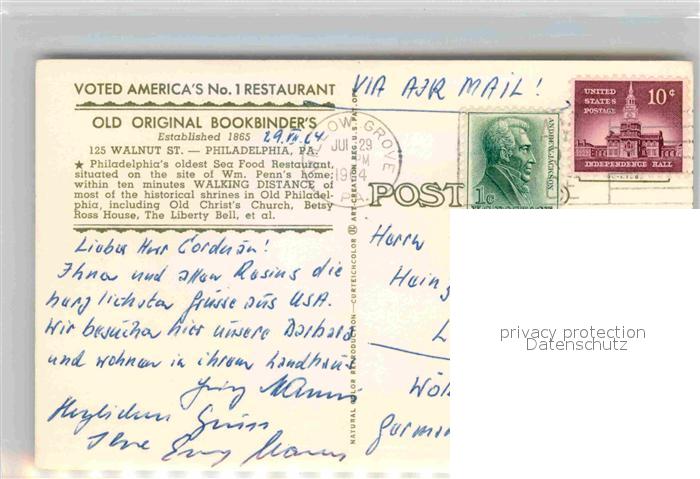 VOTED AMERICA'S No. 1 RESTAURANT
OLD ORIGINAL BOOKBINDER'S
Established 1865
29.VII.64
125 WALNUT ST. — PHILADELPHIA, PA.
★ Philadelphia's oldest Sea Food Restaurant,
situated on the site of Wm. Penn's home;
within ten minutes WALKING DISTANCE of
most of the historical shrines in Old Philadel-
phia, including Old Christ's Church, Betsy
Ross House, The Liberty Bell, et al.
Lieber Herr
Ihnen und allen Rosins die
herzlichsten Grüsse aus USA.
Wir besuchen hier unsere Barbara
und wohnen in ihrem Landhaus
Herzlichen Gruss
Ihre
NATURAL COLOR REPRODUCTION—CURTEICHCOLOR ® ART-CREATION REG. U.S. PAT. OFF.
VIA AIR MAIL!
OW GROVE
JUL 29
M
1964
PA
ANDREW JACKSON
1c
UNITED
STATES
POSTAGE
10¢
INDEPENDENCE HALL
POST
Herrn
Heinz
L
Germa
privacy protection
Datenschutz